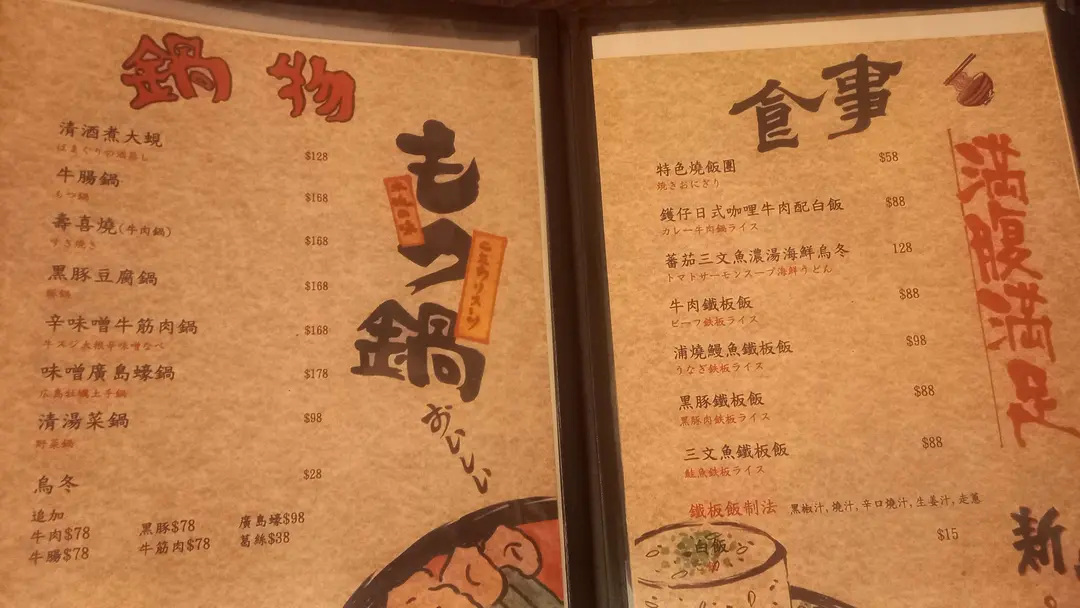 鍋物
清酒煮大蜆 $128
はまぐりの酒蒸し
牛腸鍋 $168
もつ鍋
壽喜燒(牛肉鍋) $168
すき焼き
黑豚豆腐鍋 $168
豚鍋
辛味噌牛筋肉鍋 $168
牛スジ大根辛味噌なべ
味噌廣島蠔鍋 $178
広島牡蠣土手鍋
清湯菜鍋 $98
野菜鍋
烏冬 $28
追加
牛肉$78 黑豚$78 廣島蠔$98
牛腸$78 牛筋肉$78 葛絲$38
もつ鍋
おいしい
食事
特色燒飯團 $58
焼きおにぎり
鑊仔日式咖哩牛肉配白飯 $88
カレー牛肉鍋ライス
蕃茄三文魚濃湯海鮮烏冬 128
トマトサーモンスープ海鮮うどん
牛肉鐵板飯 $88
ビーフ鉄板ライス
浦燒鰻魚鐵板飯 $98
うなぎ鉄板ライス
黑豚鐵板飯 $88
黒豚肉鉄板ライス
三文魚鐵板飯 $88
鮭魚鉄板ライス
鐵板飯制法 黑椒汁,燒汁,辛口燒汁,生姜汁,走蔥
白飯 $15
満腹満足
新